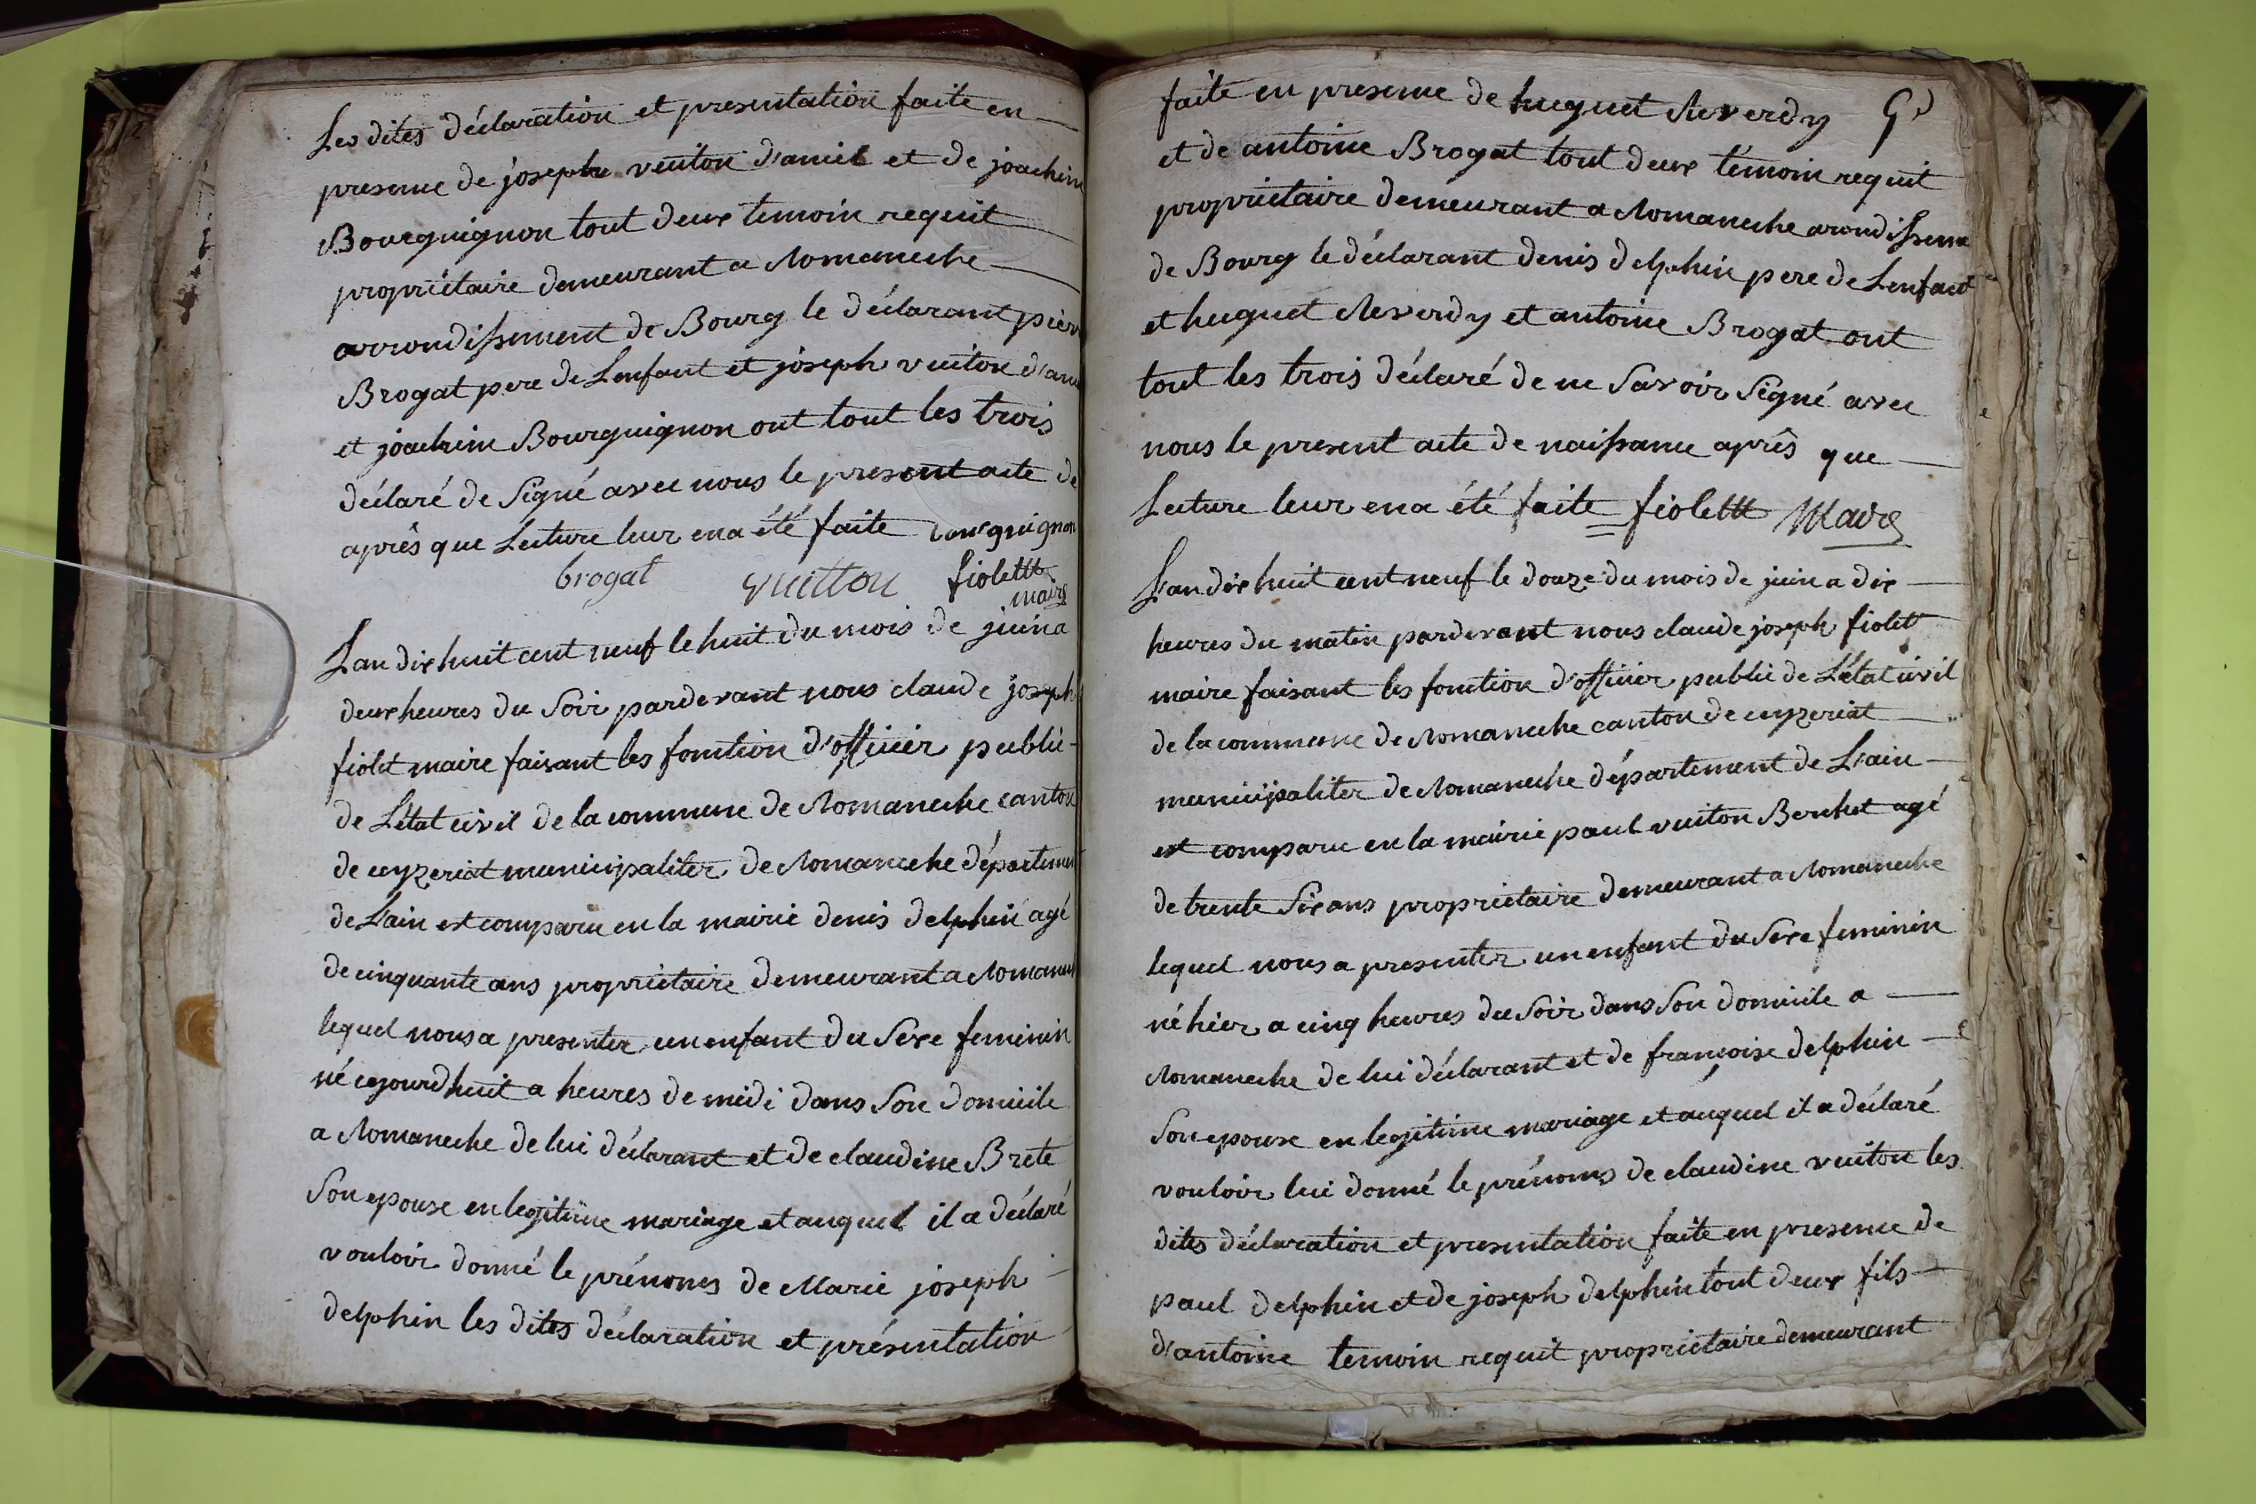 Les dites déclaration et presentation faite en
presence de joseph vuiton d'amiel et de joachim
Bourguignon tout deux temoin requit
propriétaire demeurant a Romaneche
arrondissement de Bourg le déclarant pierre
Brogat pere de Lenfant et joseph vuiton d'am
et joachim Bourguignon ont tout les trois
déclaré de signé avec nous le present acte de
après que Lecture leur en a été faite bourguignon
brogat vuitton fiolettt
maire
Lan dix huit cent neuf le huit du mois de juin a
deux heures du Soir pardevant nous claude joseph
fiolet maire faisant les fonction d'officier public
de L'état civil de la commune de Romaneche canton
de ceyzeriat municipaliter de Romaneche département
de L'ain est comparu en la mairie denis delphin agé
de cinquante ans propriétaire demeurant a Romanech
lequel nous a presenter un enfant du Sexe feminin
né cejourdhuit a heures de midi dans Son domicile
a Romaneche de lui déclarant et de claudine Brete
Son epouse en legitime mariage et auquel il a déclaré
vouloir donné le prénoms de Marie joseph
delphin les dites déclaration et présentation
faite en presence de huguet Reverdy
et de antoine Brogat tout deux témoin requit
propriétaire demeurant a Romaneche arondissem
de Bourg le déclarant denis delphin pere de Lenfant
et huguet Reverdy et antoine Brogat ont
tout les trois déclaré de ne Savoir Signé avec
nous le present acte de naissance après que
Lecture leur en a été faite fiolettt Maire
L'an dix huit cent neuf le douze du mois de juin a dix
heures du matin pardevant nous claude joseph fiolet
maire faisant les fonction d'officier public de L'état civil
de la commune de Romaneche canton de ceyzeriat
municipaliter de Romaneche département de L'ain
est comparu en la mairie paul vuiton Berchet agé
de trente Six ans propriétaire demeurant a Romaneche
lequel nous a presenter un enfant du Sexe feminin
né hier a cinq heures du Soir dans Son domicile a
Romaneche de lui déclarant et de françoise delphin
Son epouse en legitime mariage et auquel il a déclaré
vouloir lui donné le prénoms de claudine vuiton les
dites déclaration et presentation faite en presence de
paul delphin et de joseph delphin tout deux fils
d'antoine temoin requit propriétaire demeurant